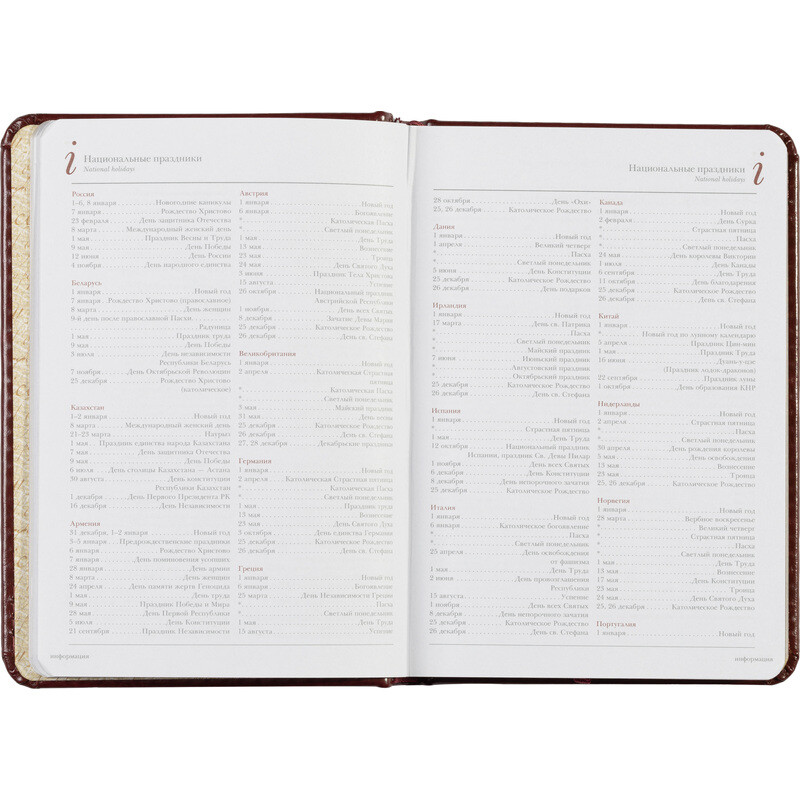 Национальные праздники
National holidays
Россия
1–6, 8 января Новогодние каникулы
7 января Рождество Христово
23 февраля День защитника Отечества
8 марта Международный женский день
1 мая Праздник Весны и Труда
9 мая День Победы
12 июня День России
4 ноября День народного единства
Беларусь
1 января Новый год
7 января Рождество Христово (православное)
8 марта День женщин
9-й день после православной Пасхи
Радуница
1 мая Праздник труда
9 мая День Победы
3 июля День независимости
Республики Беларусь
7 ноября День Октябрьской Революции
25 декабря Рождество Христово
(католическое)
Казахстан
1–2 января Новый год
8 марта Международный женский день
21–23 марта Наурыз
1 мая Праздник единства народа Казахстана
7 мая День защитника Отечества
9 мая День Победы
6 июля День столицы Казахстана – Астана
30 августа День конституции
Республики Казахстан
1 декабря День Первого Президента РК
16 декабря День Независимости
Армения
31 декабря, 1–2 января Новый год
3–5 января Предрождественские праздники
6 января Рождество Христово
7 января День поминовения усопших
28 января День армии
8 марта День женщин
24 апреля День памяти жертв Геноцида
1 мая День труда
9 мая Праздник Победы и Мира
28 мая День Первой Республики
5 июля День Конституции
21 сентября Праздник Независимости
Австрия
1 января Новый год
6 января Богоявление
* Католическая Пасха
* Светлый понедельник
1 мая День Труда
13 мая Вознесение
23 мая Троица
24 мая День Святого Духа
3 июня Праздник Тела Христова
15 августа Успение
26 октября Национальный праздник
Австрийской Республики
1 ноября День всех Святых
8 декабря Зачатие Девы Марии
25 декабря Католическое Рождество
26 декабря День св. Стефана
Великобритания
1 января Новый год
2 апреля Католическая Страстная
пятница
* Католическая Пасха
* Светлый понедельник
3 мая Майский праздник
31 мая День весны
25 декабря Католическое Рождество
26 декабря День св. Стефана
27, 28 декабря Декабрьские праздники
Германия
1 января Новый год
2 апреля Католическая Страстная пятница
* Католическая Пасха
* Светлый понедельник
1 мая Праздник труда
13 мая Вознесение
23 мая День Святого Духа
3 октября День единства Германии
25 декабря Католическое Рождество
26 декабря День св. Стефана
Греция
1 января Новый год
6 января Богоявление
25 марта День Независимости Греции
* Пасха
* Светлый понедельник
1 мая День Труда
15 августа Успение
информация
Национальные праздники
National holidays
28 октября День «Охи»
25, 26 декабря Католическое Рождество
Дания
1 января Новый год
1 апреля Великий четверг
* Пасха
* Светлый понедельник
5 июня День Конституции
25 декабря Католическое Рождество
26 декабря День подарков
Ирландия
1 января Новый год
17 марта День св. Патрика
* Пасха
* Светлый понедельник
* Майский праздник
7 июня Июньский праздник
* Августовский праздник
* Октябрьский праздник
25 декабря Католическое Рождество
26 декабря День св. Стефана
Испания
1 января Новый год
* Страстная пятница
1 мая День Труда
12 октября Национальный праздник
Испании, праздник Св. Девы Пилар
1 ноября День всех Святых
6 декабря День Конституции
8 декабря День непорочного зачатия
25 декабря Католическое Рождество
Италия
1 января Новый год
6 января Католическое богоявление
* Пасха
* Светлый понедельник
25 апреля День освобождения
от фашизма
1 мая День Труда
2 июня День провозглашения
Республики
15 августа Успение
1 ноября День всех Святых
8 декабря День непорочного зачатия
25 декабря Католическое Рождество
26 декабря День св. Стефана
Канада
1 января Новый год
2 февраля День Сурка
* Страстная пятница
* Пасха
* Светлый понедельник
24 мая День королевы Виктории
1 июля День Канады
6 сентября День Труда
11 октября День благодарения
25 декабря Католическое Рождество
26 декабря День св. Стефана
Китай
1 января Новый год
* Новый год по лунному календарю
5 апреля Праздник Цин-мин
1 мая Праздник Труда
16 июня Дуань-у-цзе
(Праздник лодок-драконов)
22 сентября Праздник луны
1 октября День образования КНР
Нидерланды
1 января Новый год
2 апреля Страстная пятница
* Пасха
* Светлый понедельник
30 апреля День рождения королевы
5 мая День освобождения
13 мая Вознесение
23 мая Троица
25, 26 декабря Католическое Рождество
Норвегия
1 января Новый год
28 марта Вербное воскресенье
* Великий четверг
* Страстная пятница
* Пасха
* Светлый понедельник
1 мая День Труда
13 мая Вознесение
17 мая День Конституции
23 мая Троица
24 мая День Святого Духа
25, 26 декабря Католическое Рождество
Португалия
1 января Новый год
информация